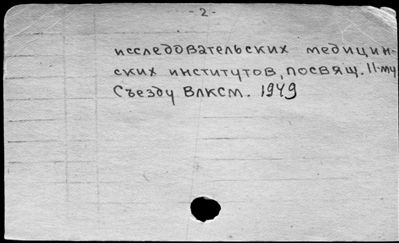 - 2 -
исследовательских медицин-
ских институтов, посвящ. 11-му
Съезду ВЛКСМ. 1949